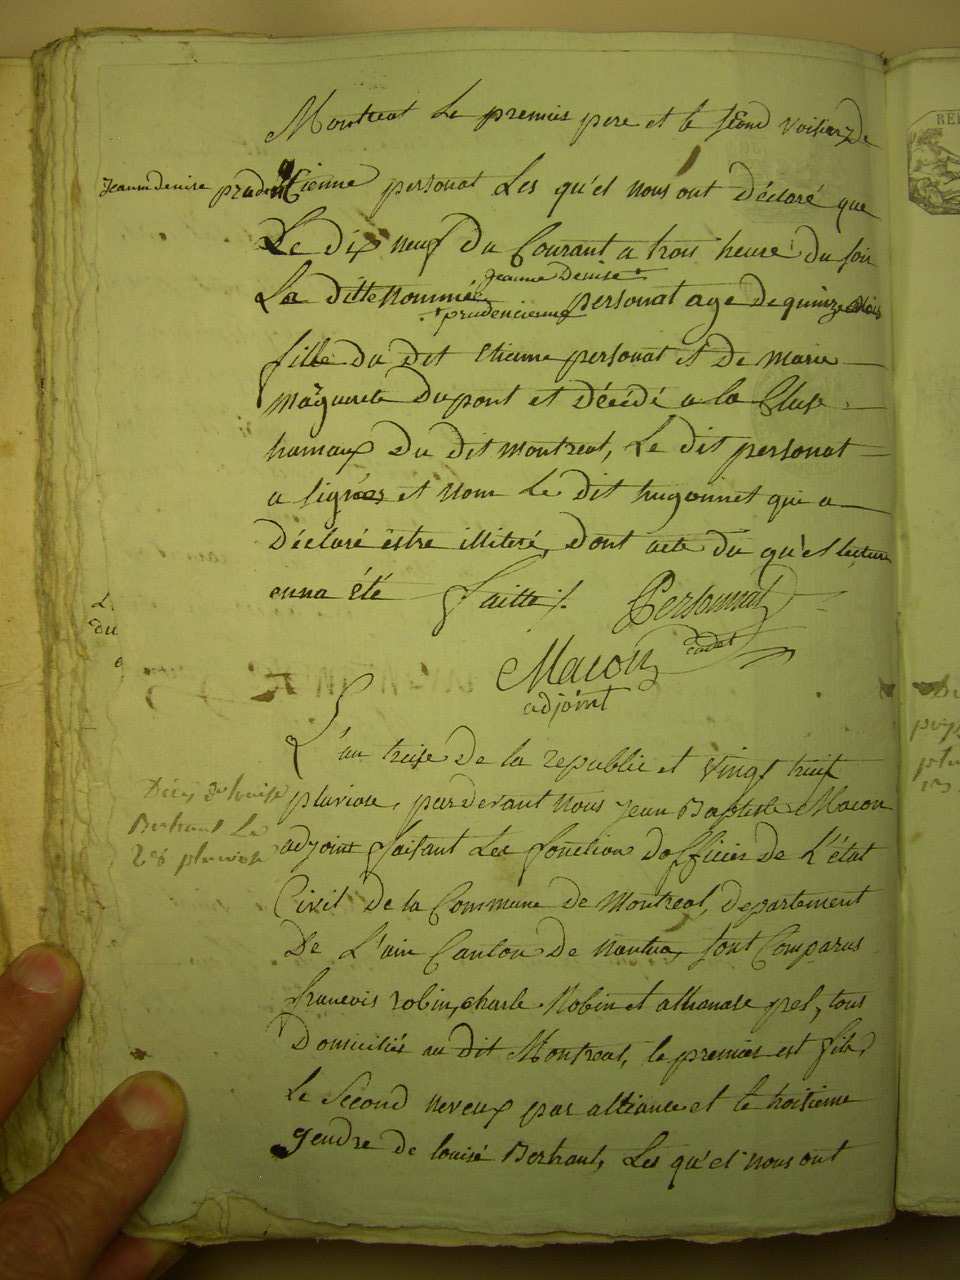 Montreal Le premier pere et le second voisin de
Jeanne denise prudencienne personat Les qu'el nous ont déclaré que
Le dix neuf du Courant a trois heure du soir
Jeanne Denise
La ditte nommée personat age de quinze mois
prudencienne
fille du dit etienne personat et de marie
marguerite dupont et décédé a la Cluse
hamaux du dit montreal, Le dit personat
a signer et nom Le dit hugonnet qui a
déclaré estre illiteré, dont acte du qu'el lecture
enna été faitte /.
Personnat
cadet
Macon
adjoint
L'an treise de la republic et vingt huit
pluviose, pardevant nous jean Baptiste Macon
Décès de louise
Bertrand Le
28 pluviose
adjoint faisant Les fonction dofficier de L'état
Civil de la Commune de Montreal, departement
De L'ain Canton de nantua, sont Comparus
francois robin, charle Robin et athanase prel, tous
Domiciliés au dit Montreal, le premier est fils,
Le Second neveux par alliance et le troisieme
gendre de louisé Bertrant, Les qu'el nous ont
REP